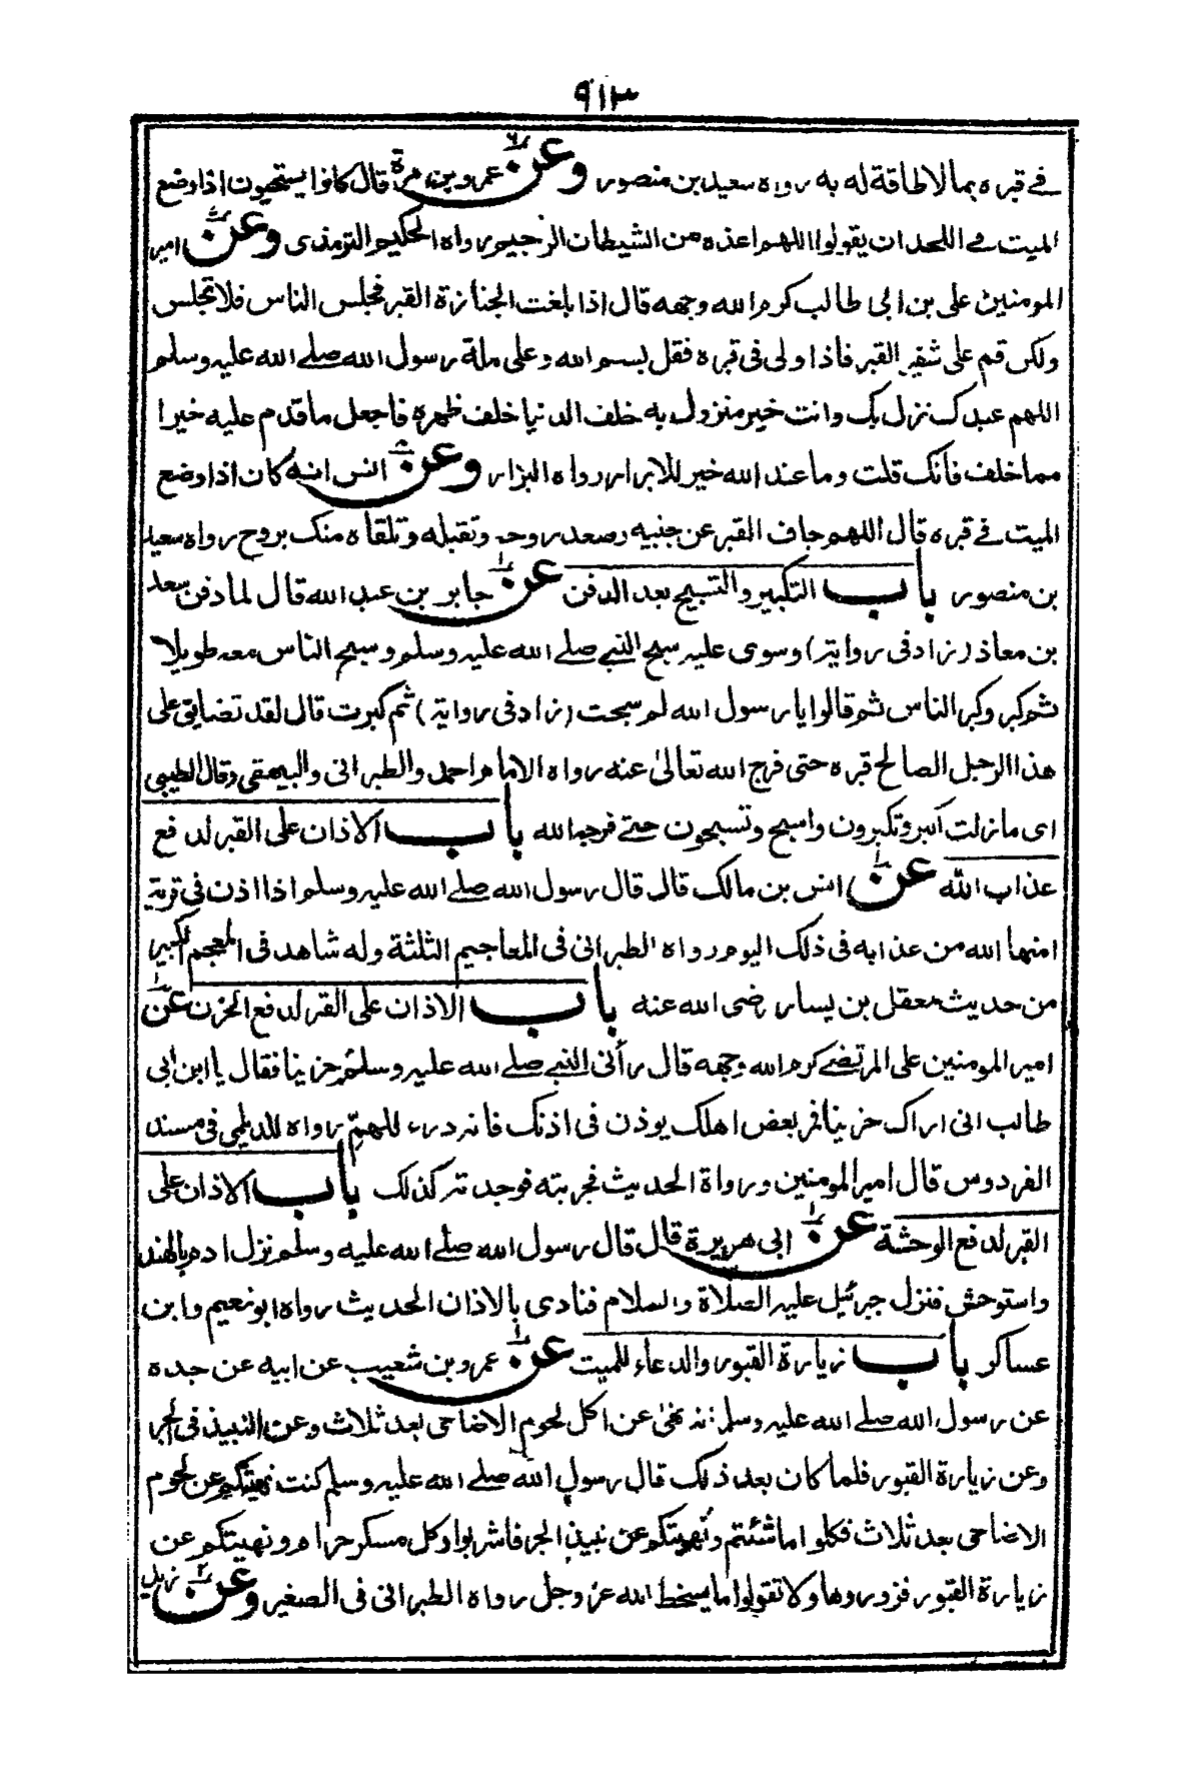 ٩١٣
في قبره بما لا طاقة له به رواه سعيد بن منصور وعن عمرو بن مرة قال كانوا يستحبون اذا وضع
الميت في اللحد ان يقولوا اللهم اعذه من الشيطان الرجيم رواه الحكيم الترمذى وعن امير
المومنين على بن ابي طالب كرم الله وجهه قال اذا بلغت الجنازة القبر فجلس الناس فلا تجلس
ولكن قم على شفير القبر فاذا ولى فى قبره فقل بسم الله وعلى ملة رسول الله صلے الله عليه وسلم
اللهم عبدك نزل بك وانت خير منزول به خلف الدنيا خلف ظهره فاجعل ما قدم عليه خيرا
مما خلف فانك قلت وما عند الله خير للابرار رواه البزار وعن انس انه كان اذا وضع
الميت في قبره قال اللهم جاف القبر عن جنبيه وصعد روحه وتقبله وتلقاه منك بروح رواه سعيد
بن منصور باب التكبير والتسبيح بعد الدفن عن جابر بن عبد الله قال لما دفن سعد
بن معاذ (زاد فى رواية) وسوى عليه سبح النبي صلے الله عليه وسلم وسبح الناس معه طويلا
ثم كبر وكبر الناس ثم قالوا يا رسول الله لم سبحت (زاد فى رواية) ثم كبرت قال لقد تضايق على
هذا الرجل الصالح قبره حتى فرج الله تعالىٰ عنه رواه الامام احمد والطبرانى والبيهقى وقال الطيبى
اى ما زلت اكبر وتكبرون واسبح وتسبحون حتے فرجه الله باب الاذان على القبر لدفع
عذاب الله عن انس بن مالك قال قال رسول الله صلے الله عليه وسلم اذا اذن في قرية
امنها الله من عذابه فى ذلك اليوم رواه الطبرانى فى المعاجيم الثلثة وله شاهد فى المعجم الكبير
من حديث معقل بن يسار رضى الله عنه باب الاذان على القبر لدفع الحزن عن
امير المومنين على المرتضے كرم الله وجهه قال رأنى النبے صلے الله عليه وسلم حزينا فقال يا ابن ابى
طالب انى اراك حزينا فمر بعض اهلك يوذن فى اذنك فانه درء للهمّ رواه للديلمى فى مسند
الفردوس قال امير المومنين ورواة الحديث فجربته فوجدته كذلك باب الاذان على
القبر لدفع الوحشة عن ابى هريرة قال قال رسول الله صلے الله عليه وسلم نزل ادم بالهند
واستوحش فنزل جبرئيل عليه الصلاة والسلام فنادى بالاذان الحديث رواه ابو نعيم وابن
عساكر باب زيارة القبور والدعاء للميت عن عمرو بن شعيب عن ابيه عن جده
عن رسول الله صلے الله عليه وسلم انه نهىٰ عن اكل لحوم الاضاحى بعد ثلاث وعن النبيذ فى الجر
وعن زيارة القبور فلما كان بعد ذلك قال رسول الله صلے الله عليه وسلم كنت نهيتكم عن لحوم
الاضاحى بعد ثلاث فكلوا ما شئتم ونهيتكم عن نبيذ الجر فاشربوا وكل مسكر حرام ونهيتكم عن
زيارة القبور فزوروها ولا تقولوا ما يسخط الله عز وجل رواه الطبرانى فى الصغير وعن زيد